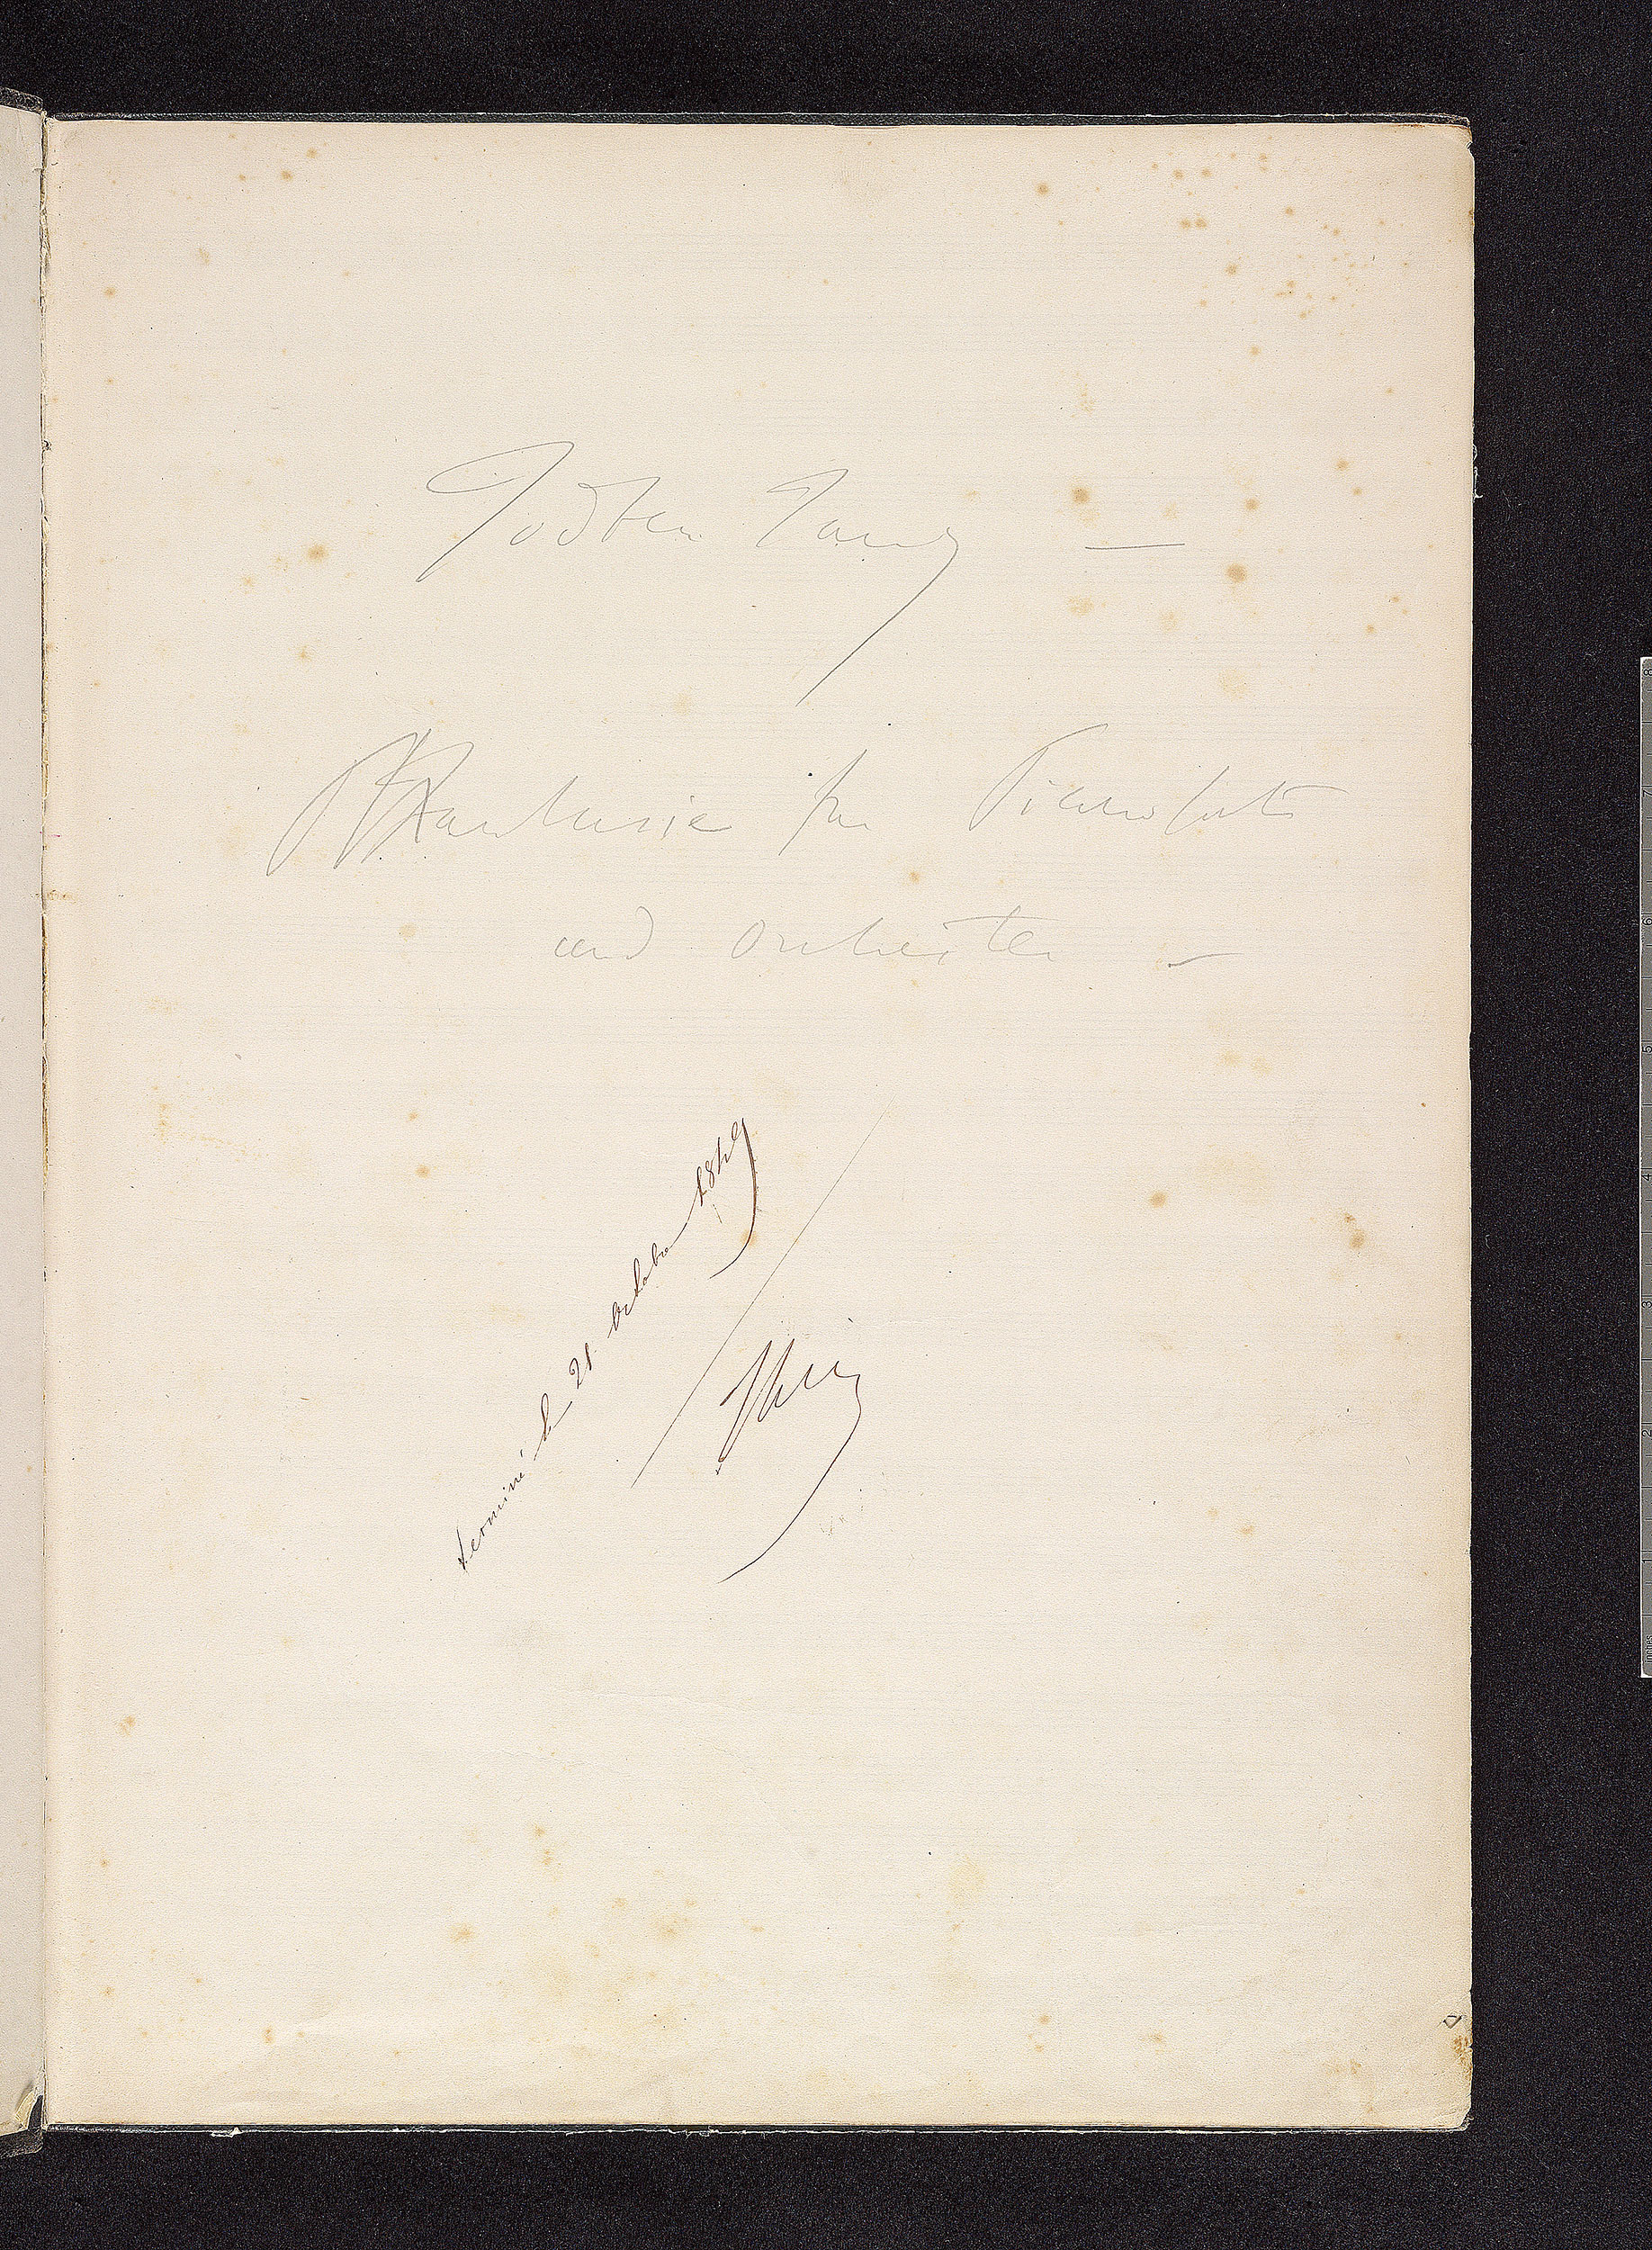 Todten Tanz —
Phantasie für Pianoforte
und Orchester —
terminé le 21 Octobre 1849
FLiszt
inches 1 2 3 4 5 6 7 8